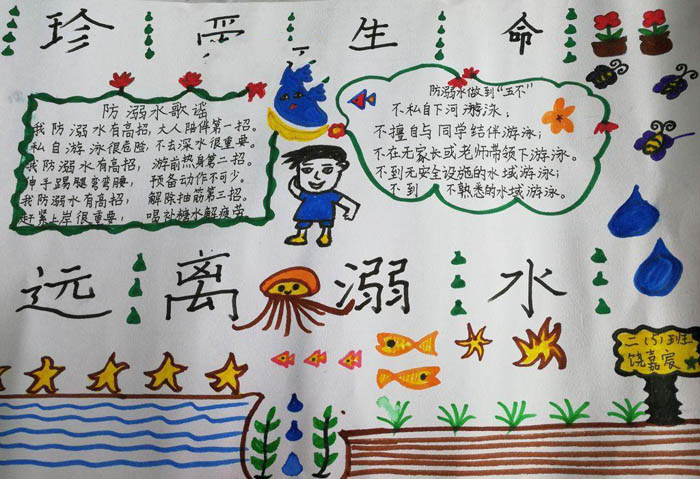 珍爱生命
防溺水歌谣
我防溺水有高招，大人陪伴第一招。
私自游泳很危险，不去深水很重要。
我防溺水有高招，游前热身第二招。
伸手踢腿弯弯腰，预备动作不可少。
我防溺水有高招，解除抽筋第三招。
赶紧上岸很重要，喝处糖水解疲劳
防溺水做到“五不”
不私自下河游泳；
不擅自与同学结伴游泳；
不在无家长或老师带领下游泳。
不到无安全设施的水域游泳；
不到 不熟悉的水域游泳。
远离溺水
二(5)班
饶嘉宸